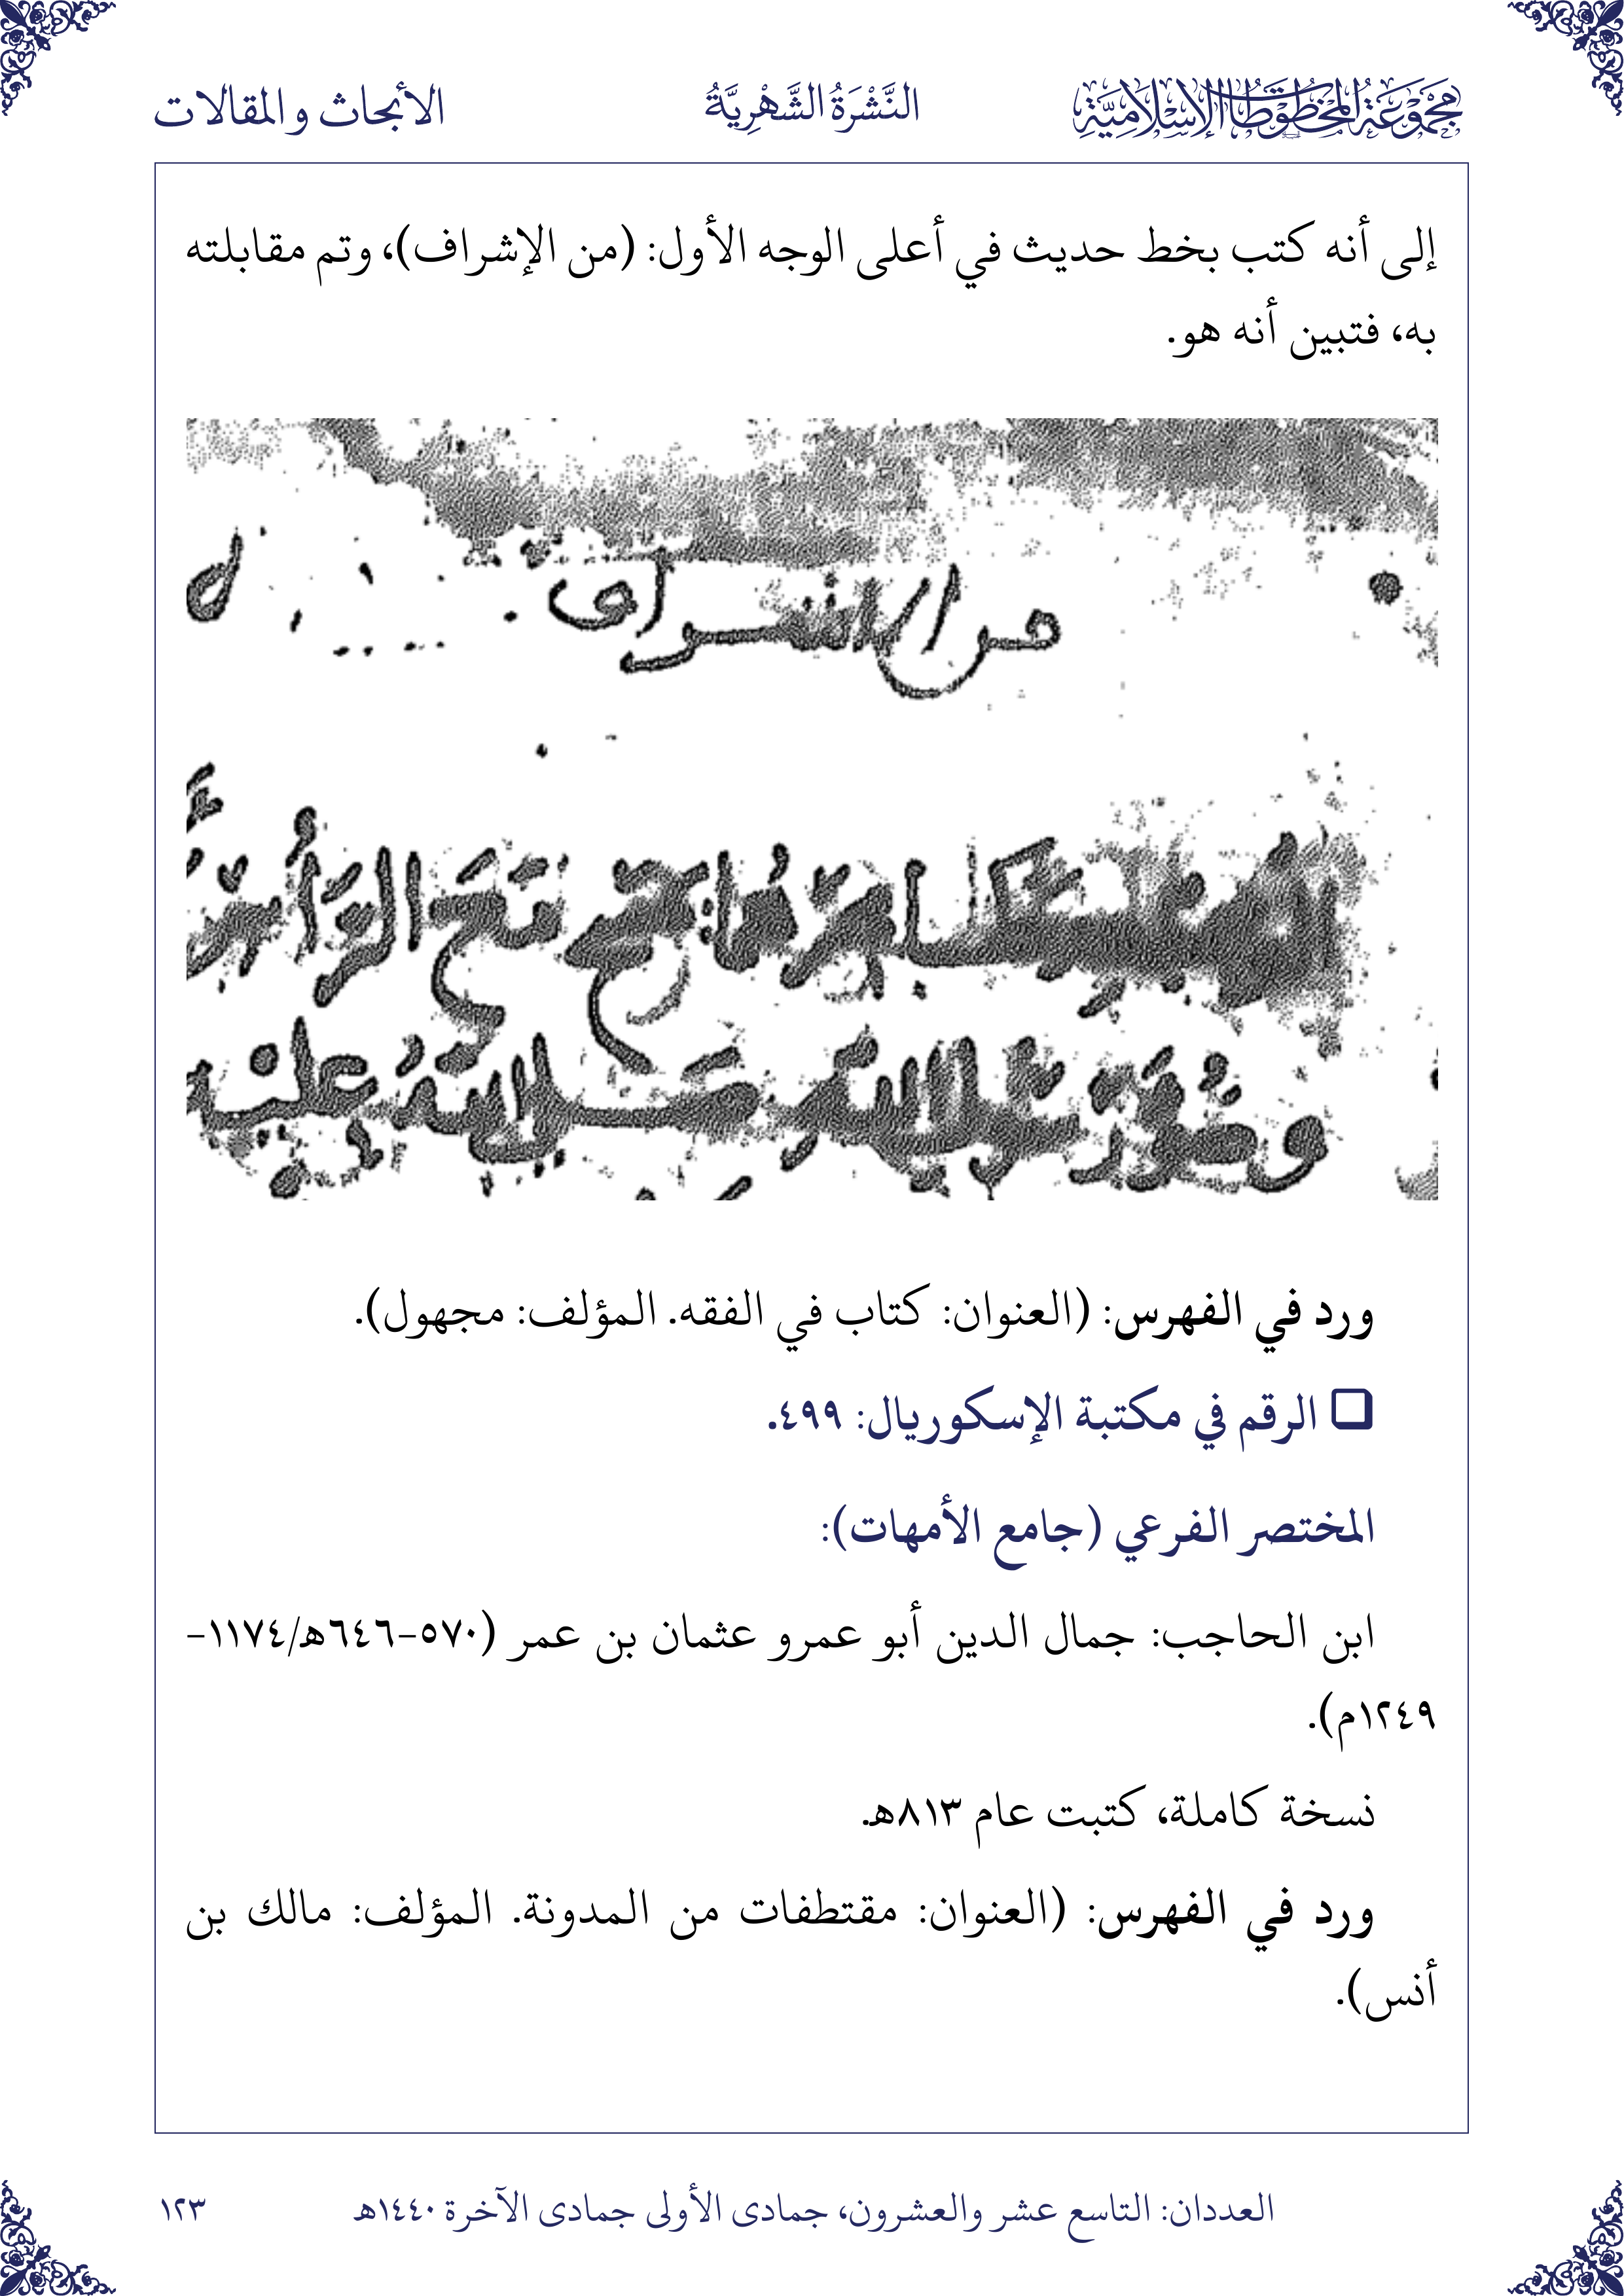 مَجْمُوعَةُ المَخْطُوطَاتِ الإِسْلَامِيَّةِ
النَّشْرَةُ الشَّهْرِيَّةُ
الأبحاث والمقالات
إلى أنه كتب بخط حديث في أعلى الوجه الأول: (من الإشراف)، وتم مقابلته
به، فتبين أنه هو.
من الاشراف
ورد في الفهرس: (العنوان: كتاب في الفقه. المؤلف: مجهول).
❑ الرقم في مكتبة الإسكوريال: ٤٩٩.
المختصر الفرعي (جامع الأمهات):
ابن الحاجب: جمال الدين أبو عمرو عثمان بن عمر (٥٧٠-٦٤٦هـ/١١٧٤-
١٢٤٩م).
نسخة كاملة، كتبت عام ٨١٣هـ.
ورد في الفهرس: (العنوان: مقتطفات من المدونة. المؤلف: مالك بن
أنس).
العددان: التاسع عشر والعشرون، جمادى الأولى جمادى الآخرة ١٤٤٠هـ
١٢٣